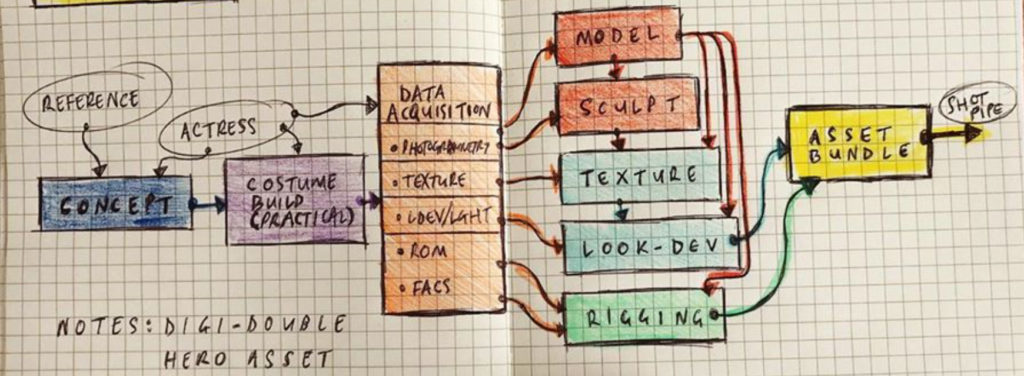 REFERENCE
ACTRESS
CONCEPT
COSTUME
BUILD
(PRACTICAL)
DATA
ACQUISITION
• PHOTOGRAMMETRY
• TEXTURE
• LDEV/LGHT
• ROM
• FACS
MODEL
SCULPT
TEXTURE
LOOK-DEV
RIGGING
ASSET
BUNDLE
SHOT
PIPE
NOTES: DIGI-DOUBLE
HERO ASSET